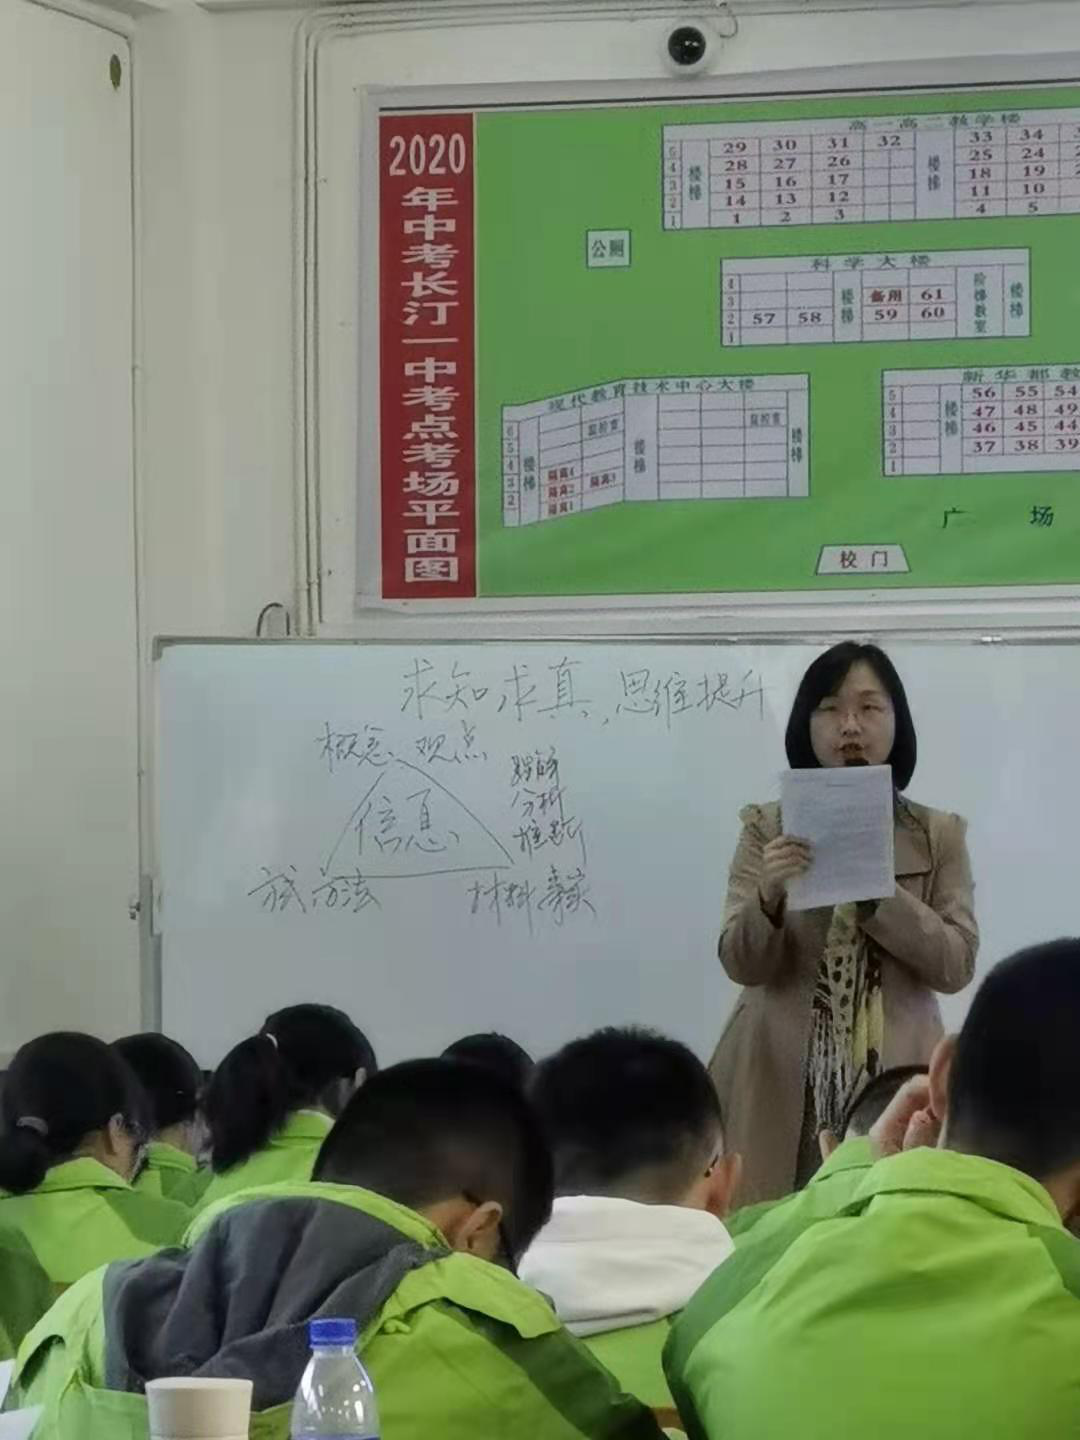 2020年中考长汀一中考点考场平面图
高一高二教学楼
5 4 3 2 1
楼梯
29 30 31 32
28 27 26
15 16 17
14 13 12
1 2 3
楼梯
33 34
25 24
18 19
11 10
4 5
公厕
科学大楼
4 3 2 1
57 58
楼梯
备用 61
59 60
阶梯教室
楼梯
现代教育技术中心大楼
6 5 4 3 2
楼梯
监控室
隔离4
隔离2 隔离3
隔离1
楼梯
监控室
楼梯
新华都教
5 4 3 2 1
楼梯
56 55 54
47 48 49
46 45 44
37 38 39
广场
校门
求知求真,思维提升
概念、观点
信息
理解
分析
推断
方法
材料